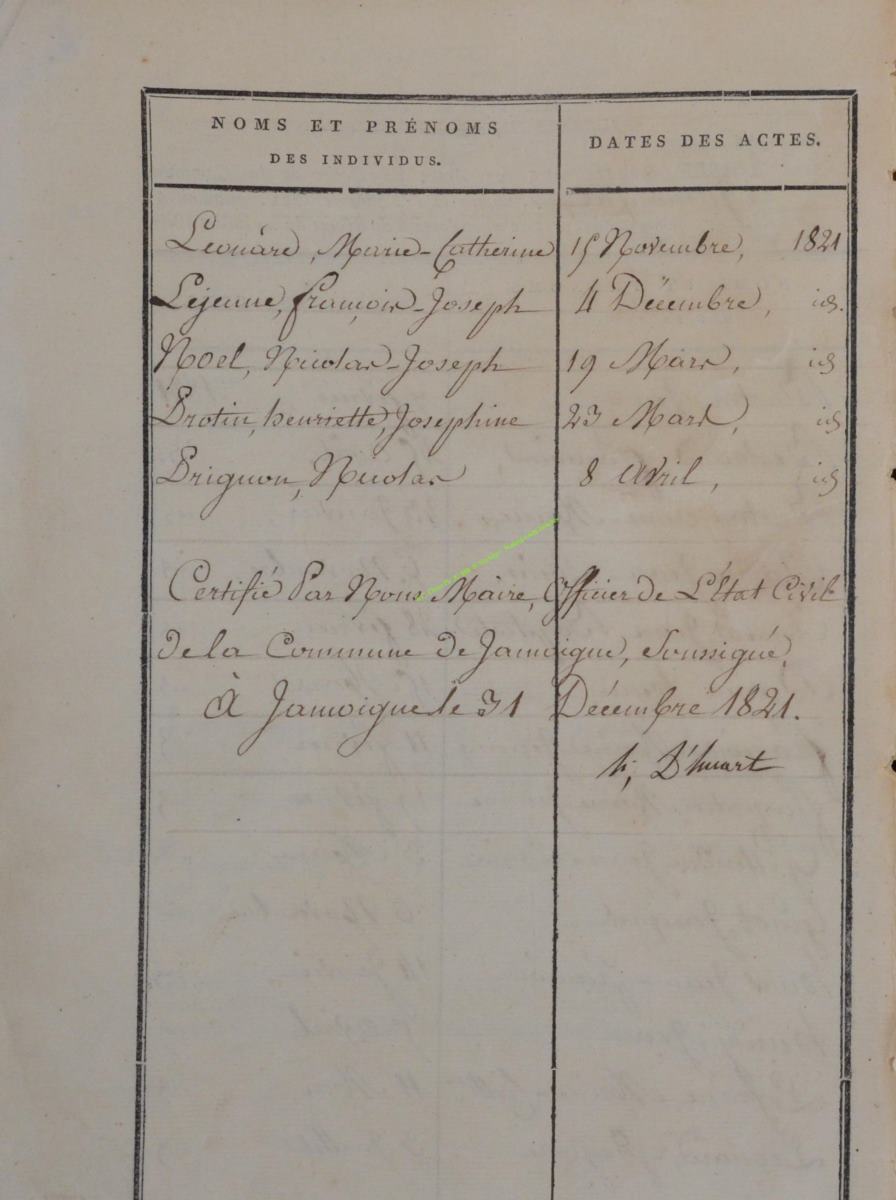 NOMS ET PRÉNOMS
DES INDIVIDUS.
DATES DES ACTES.
Leonàrd, Marie-Catherine 15 Novembre, 1821
Lejeune, françois-Joseph 4 Décembre, id.
Noel, Nicolas-Joseph 19 Mars, id
Protin, henriette, Josephine 23 Mars, id
Prignon, Nicolas 8 avril, id
Certifié Par Nous Màire, Officier de L'État Civil
de la Commune de Jamoigne, Soussigné,
À Jamoigne le 31 Décembre 1821.
h; D'huart